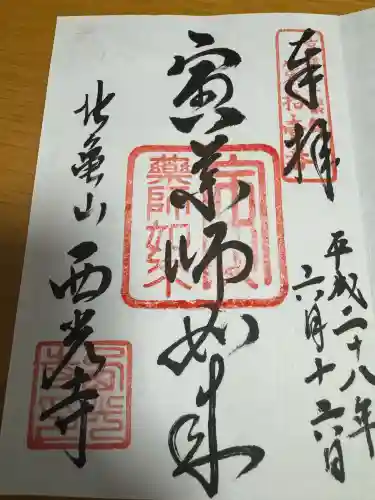 奉拝
平成二十八年
六月十六日
寅薬師如来
薬師如来
北亀山
西光寺